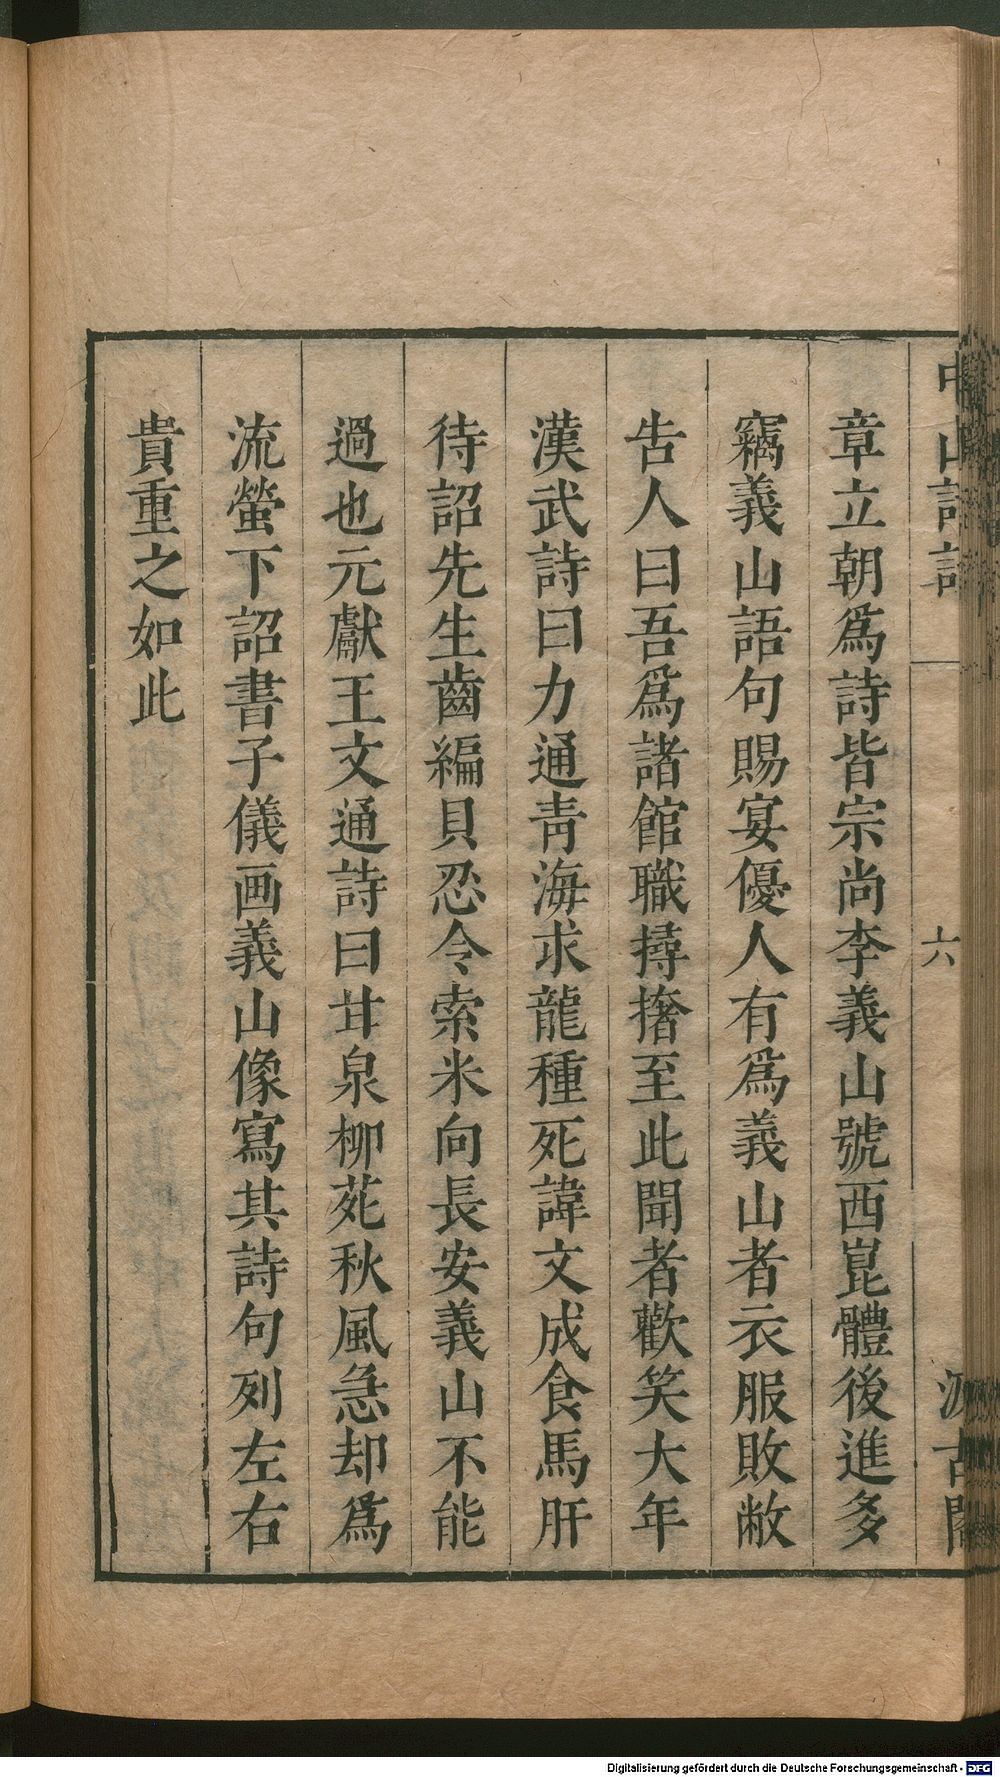 中山詩話
六
汲古閣
章立朝爲詩皆宗尚李義山號西崑體後進多
竊義山語句賜宴優人有爲義山者衣服敗敝
告人曰吾爲諸館職撏撦至此聞者歡笑大年
漢武詩曰力通青海求龍種死諱文成食馬肝
待詔先生齒編貝忍令索米向長安義山不能
過也元獻王文通詩曰甘泉柳苑秋風急却爲
流螢下詔書子儀画義山像寫其詩句列左右
貴重之如此
Digitalisierung gefördert durch die Deutsche Forschungsgemeinschaft - DFG